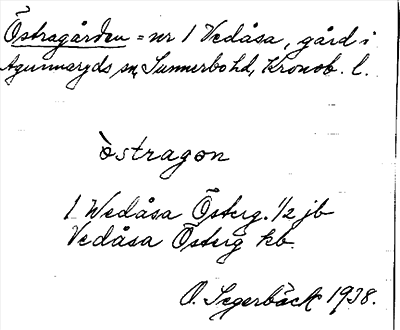 Östragården = nr 1 Vedåsa, gård i
Agunnaryds sn, Sunnerbo hd, Kronob. l.
östragon
1 Wedåsa Österg. 1/2 jb
Vedåsa Österg kb.
O. Segerbäck 1938.